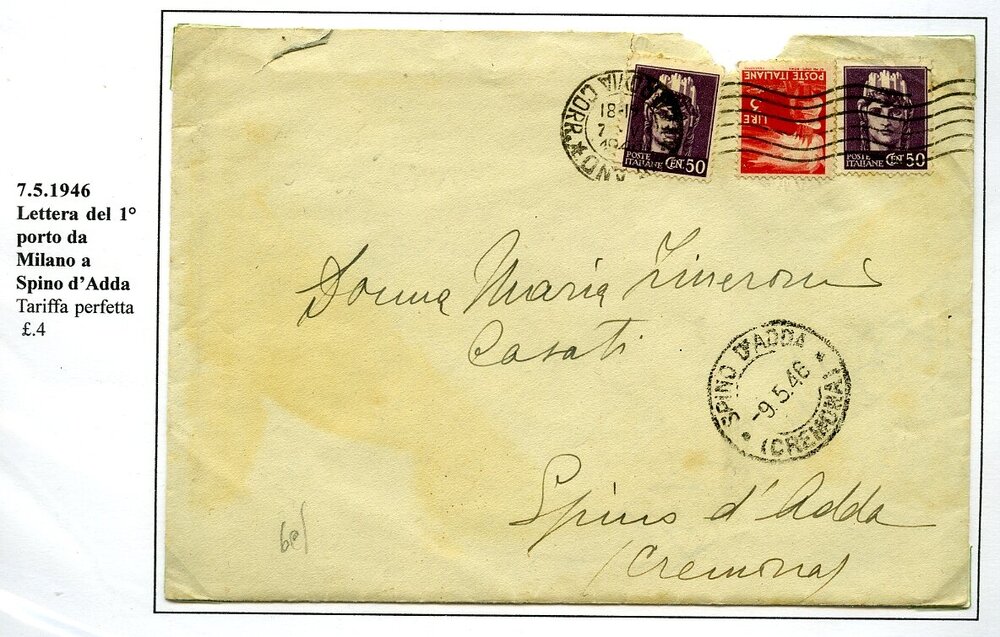 7.5.1946
Lettera del 1°
porto da
Milano a
Spino d'Adda
Tariffa perfetta
£.4
18-1
7
POSTE
ITALIANE CENT 50
POSTE ITALIANE
LIRE
3
POSTE
ITALIANE CENT 50
Donna Maria
Casati
SPINO D'ADDA
-9.5.46
(CREMONA)
Spino d'Adda
(Cremona)